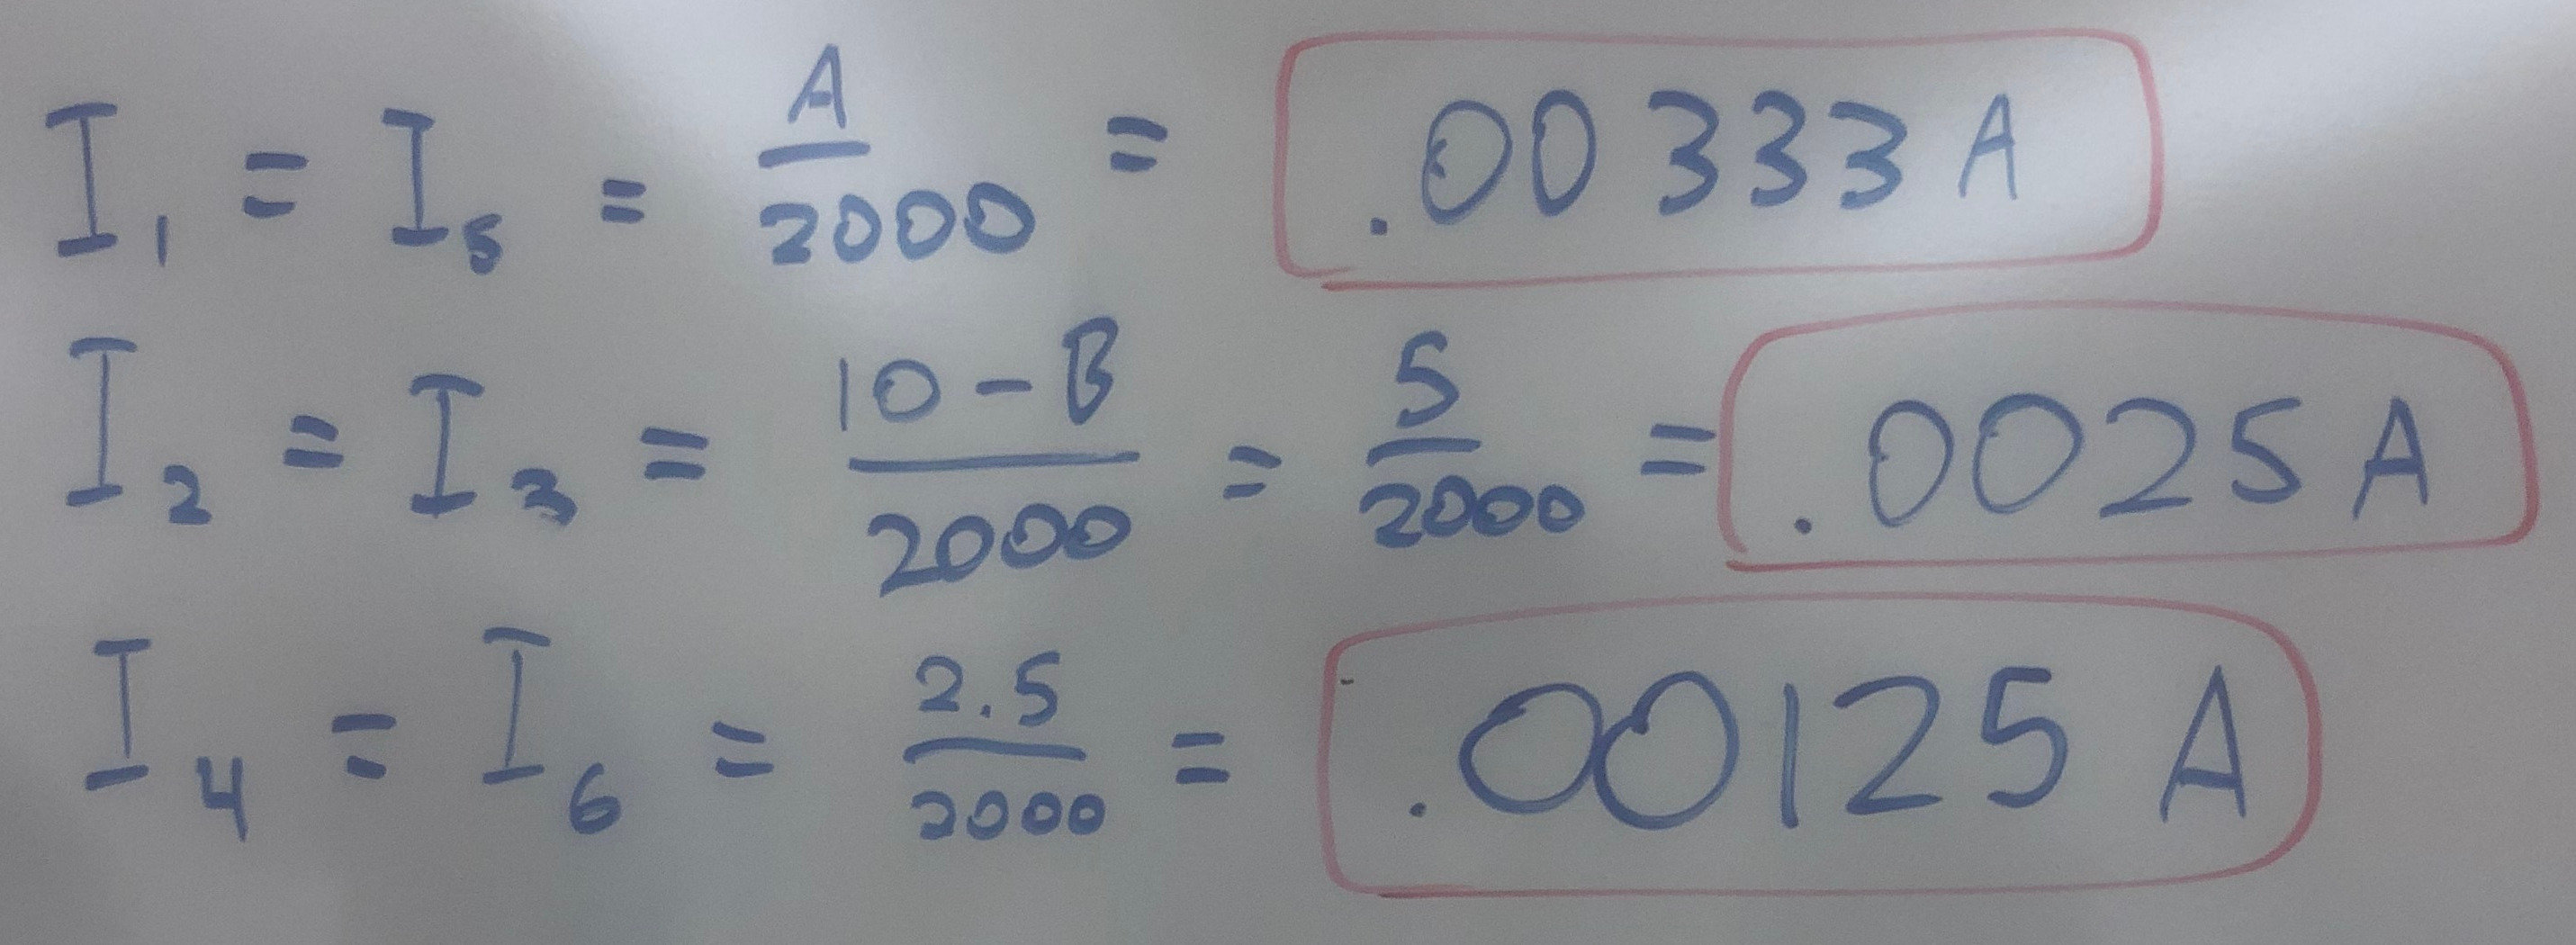 I₁ = I₅ = A/2000 = .00333 A
I₂ = I₃ = 10-B/2000 = 5/2000 = .0025 A
I₄ = I₆ = 2.5/2000 = .00125 A